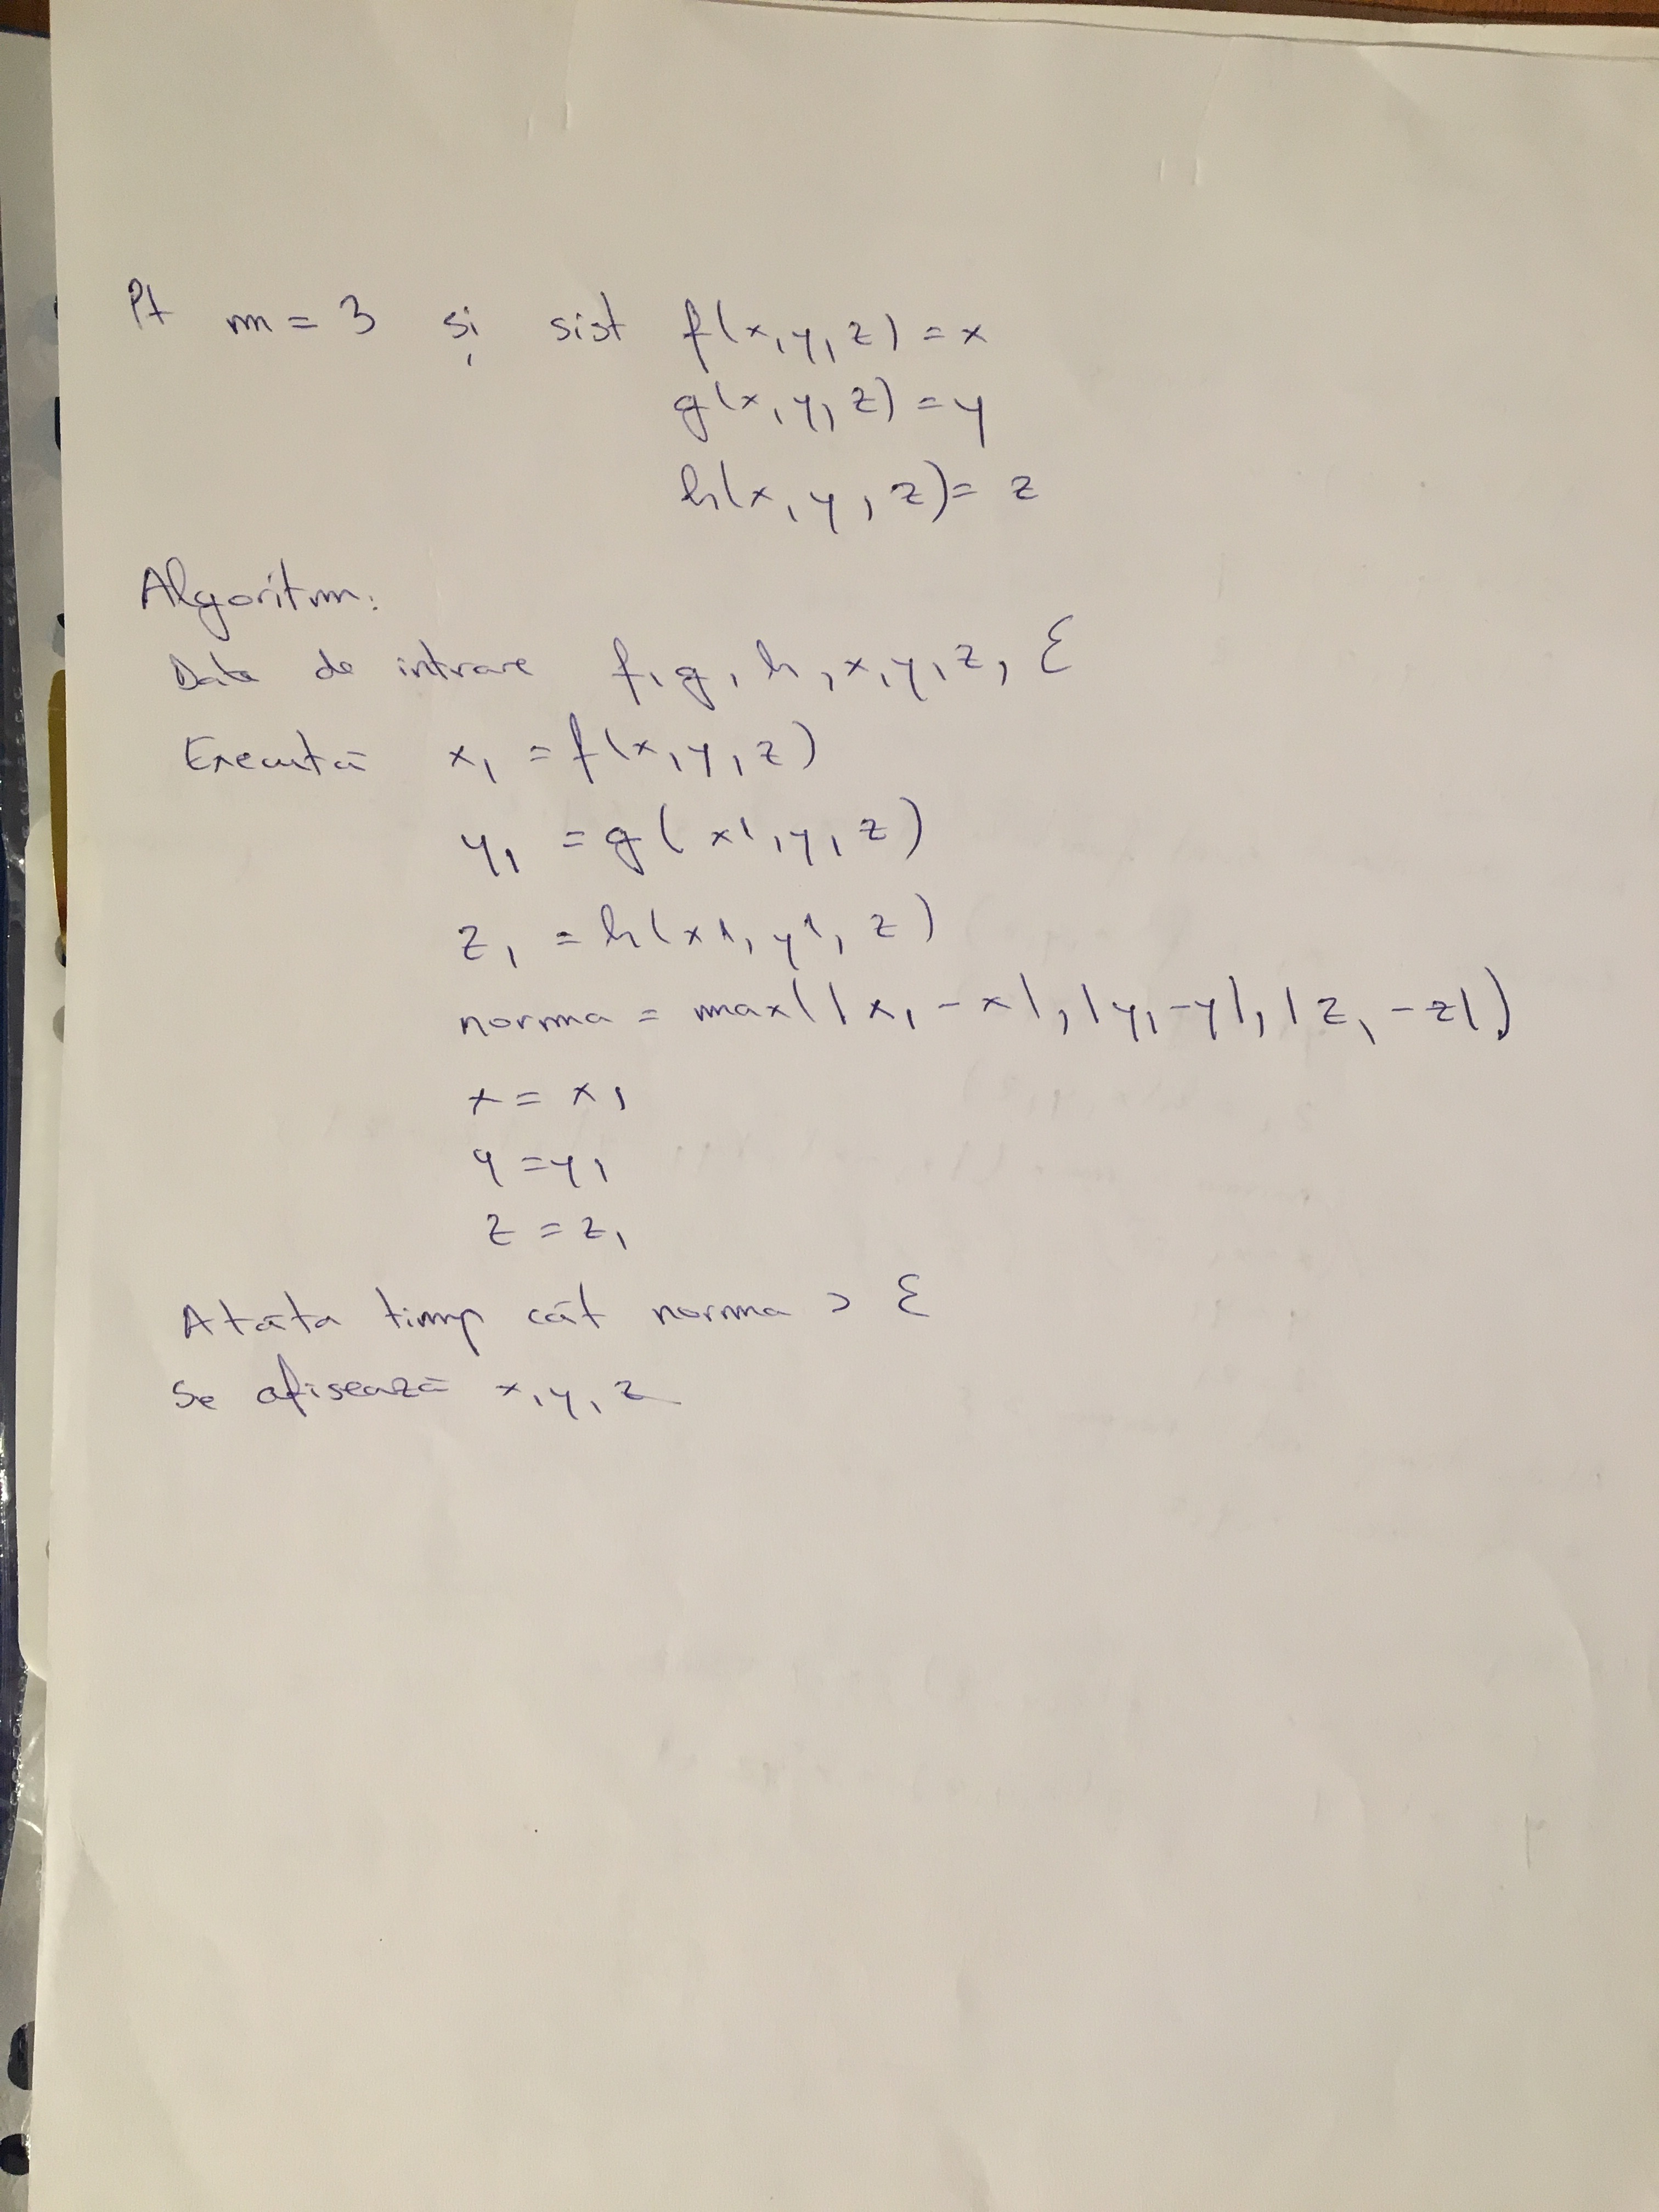 Pt m = 3 și sist f(x, y, z) = x
g(x, y, z) = y
h(x, y, z) = z
Algoritm:
Date de intrare f, g, h, x, y, z, ε
Execută x₁ = f(x, y, z)
y₁ = g(x1, y, z)
z₁ = h(x1, y1, z)
norma = max(|x₁ - x|, |y₁ - y|, |z₁ - z|)
x = x₁
y = y₁
z = z₁
Atâta timp cât norma > ε
Se afisează x, y, z